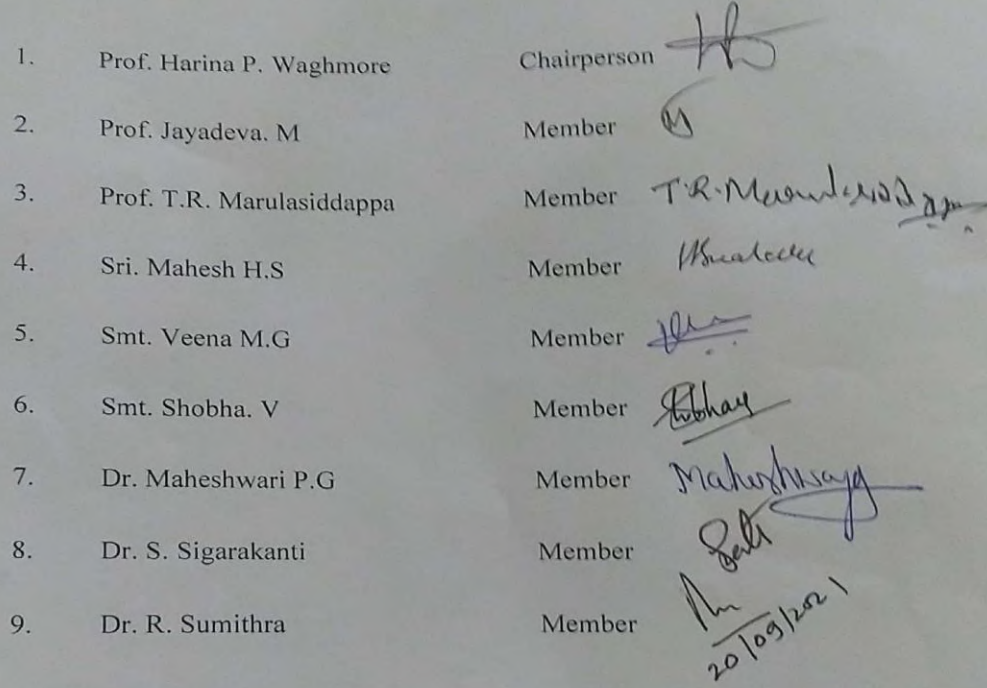 1. Prof. Harina P. Waghmore Chairperson
2. Prof. Jayadeva. M Member
3. Prof. T.R. Marulasiddappa Member T.R.
4. Sri. Mahesh H.S Member
5. Smt. Veena M.G Member
6. Smt. Shobha. V Member
7. Dr. Maheshwari P.G Member
8. Dr. S. Sigarakanti Member
9. Dr. R. Sumithra Member
20/09/2021